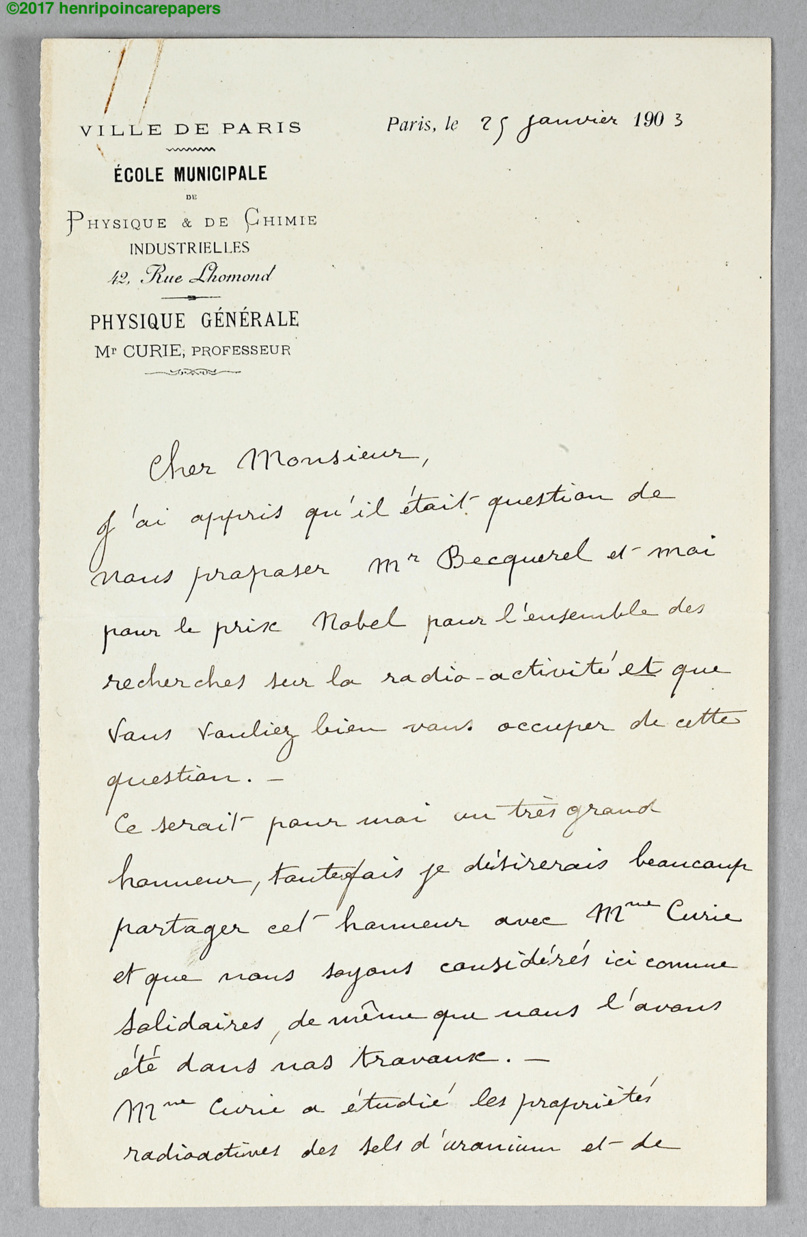 ©2017 henripoincarepapers
VILLE DE PARIS
ÉCOLE MUNICIPALE
DE
PHYSIQUE & DE CHIMIE
INDUSTRIELLES
42, Rue Lhomond
PHYSIQUE GÉNÉRALE
Mr CURIE, PROFESSEUR
Paris, le 25 janvier 1903
Cher Monsieur,
J'ai appris qu'il était question de
nous proposer Mr Becquerel et moi
pour le prix Nobel pour l'ensemble des
recherches sur la radio-activité et que
vous vouliez bien vous occuper de cette
question. —
Ce serait pour moi un très grand
honneur, toutefois je désirerais beaucoup
partager cet honneur avec Mme Curie
et que nous soyons considérés ici comme
solidaires, de même que nous l'avons
été dans nos travaux. —
Mme Curie a étudié les propriétés
radioactives des sels d'uranium et de